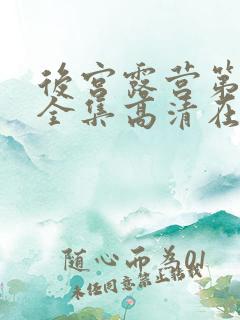 後宫露营第
全集高清在
随心而为01
未经同意禁止搬载